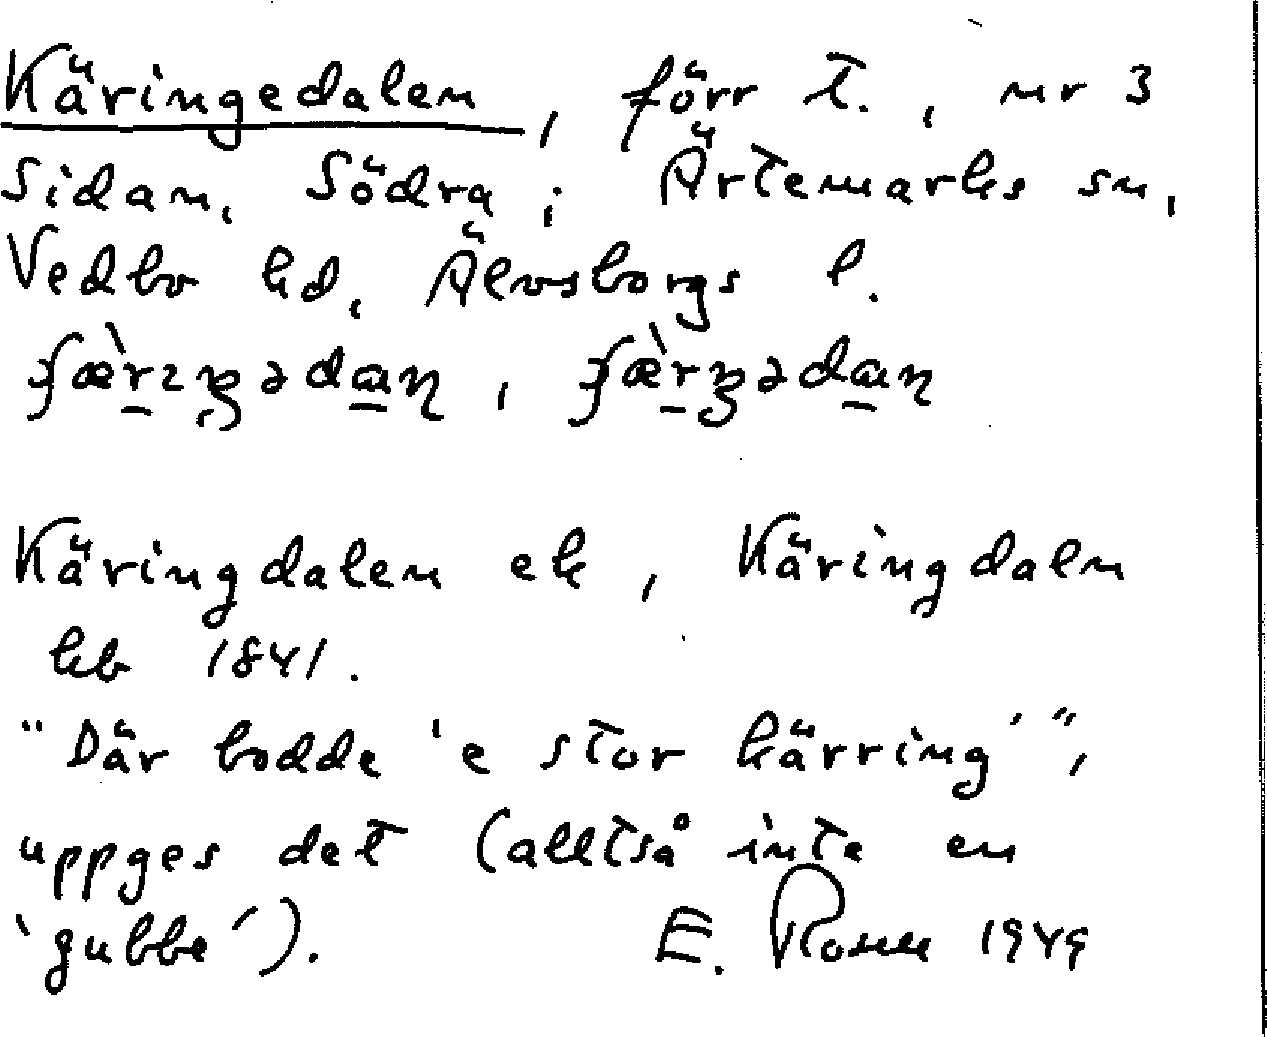 Käringedalen, förr t., nr 3
Sidan, Södra; Ärtemarks sn,
Vedbo hd, Älvsborgs l.
Käringdalen ek, Käringdaln
hb 1841.
"Där bodde 'e stor kärring'",
uppges det (alltså inte en
'gubbe').
E. Rosell 1949